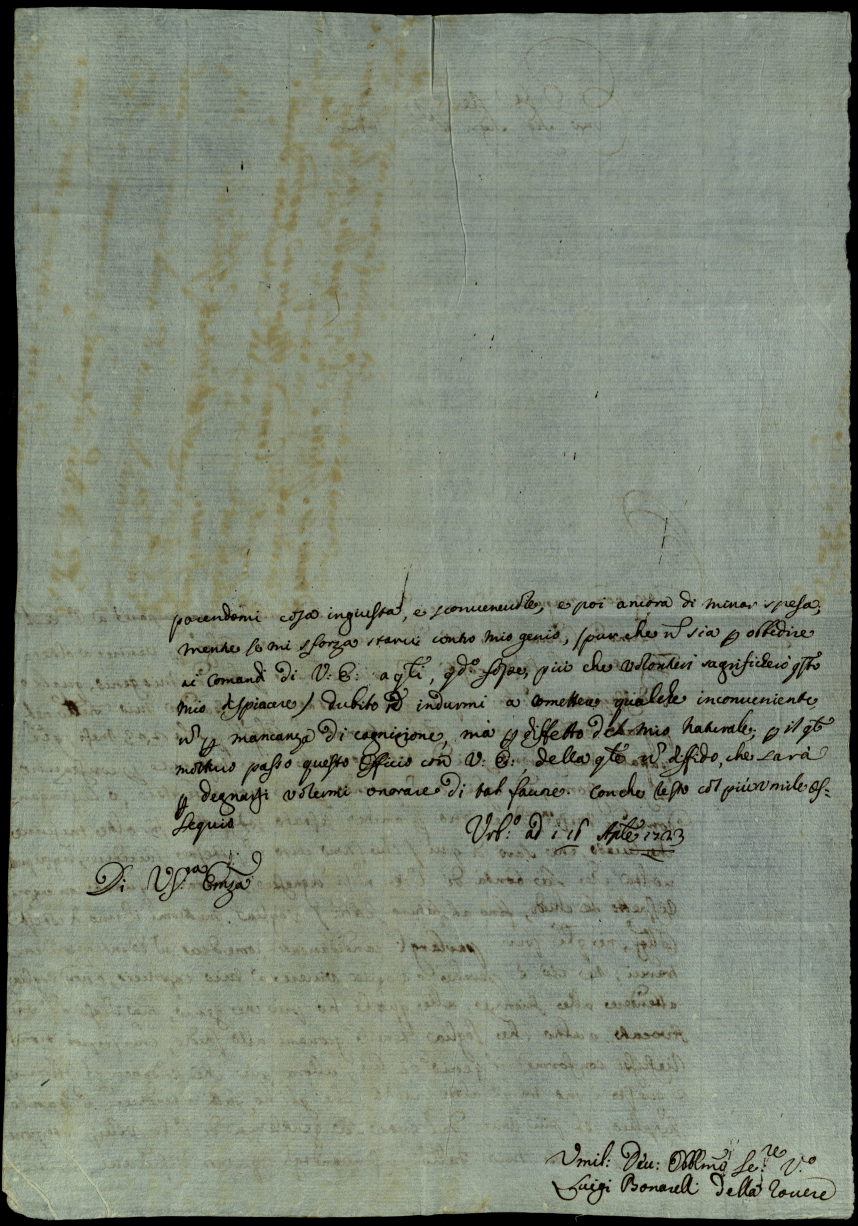 parendomi cosa ingiusta, e sconvenevole, e poi ancora di minor spesa;
mente se mi sforza starci contro mio genio, (pur che nō sia p obbedire
ai comandi di V: E: a qti, qdo più che volontieri sagrificherò qsto
mio dispiacere) dubito id indurmi a commettere qualche inconveniente
nō p mancanza di cognizione, mà p diffetto del mio naturale; p il qle
motivo passo questo Officio con V: E: della qle nō diffido, che sarà
p degnarsi volermi onorare di tal favore. Con che resto col più umile os-
sequio
Urbo: ad i 18 Aple 1723
Di VS.ra Emza
Umil: Deu: Obblmo Se:re V.o
Luigi Bonarelli Della Rovere